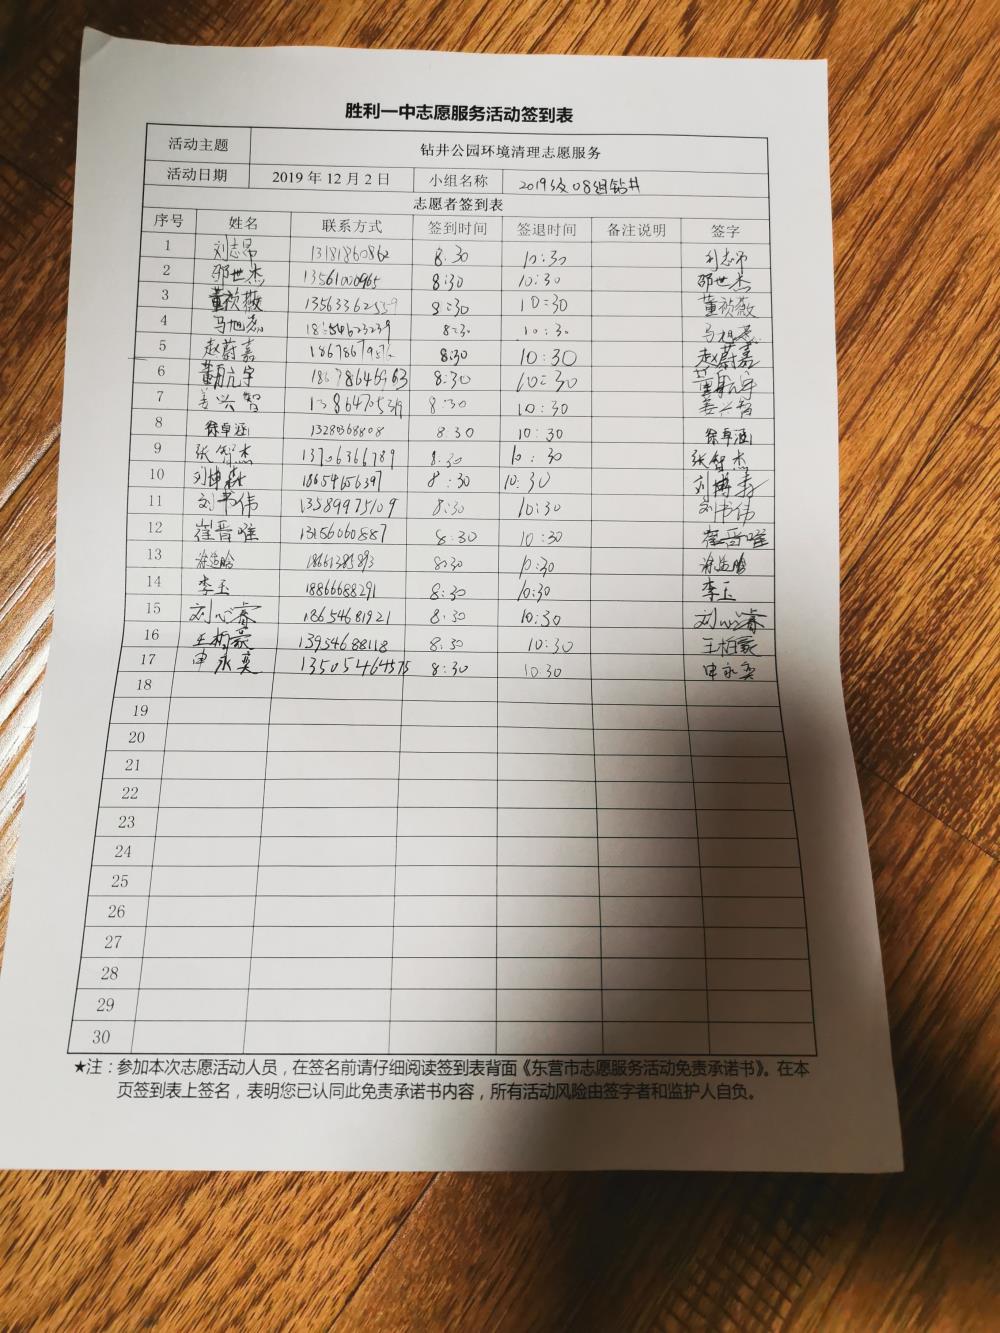 胜利一中志愿服务活动签到表
活动主题 钻井公园环境清理志愿服务
活动日期 2019年12月2日 小组名称 2019级08组钻井
志愿者签到表
序号 姓名 联系方式 签到时间 签退时间 备注说明 签字
1 刘志昂 13181860862 8:30 10:30 刘志昂
2 邵世杰 13561000965 8:30 10:30 邵世杰
3 董祯薇 13563362559 8:30 10:30 董祯薇
4 马旭 8:30 10:30 马旭
5 赵蔚嘉 8:30 10:30 赵蔚嘉
6 董航宇 18678645963 8:30 10:30 董航宇
7 姜兴智 8:30 10:30 姜兴智
8 徐卓涵 8:30 10:30 徐卓涵
9 张智杰 13706366789 8:30 10:30 张智杰
10 刘博森 18654656397 8:30 10:30 刘博森
11 刘书伟 13589975109 8:30 10:30 刘书伟
12 崔晋唯 13156060587 8:30 10:30 崔晋唯
13 8:30 10:30
14 李玉 18866688291 8:30 10:30 李玉
15 刘心睿 18654681921 8:30 10:30 刘心睿
16 王柏豪 13954688118 8:30 10:30 王柏豪
17 申永奕 13505464575 8:30 10:30 申永奕
18
19
20
21
22
23
24
25
26
27
28
29
30
★注：参加本次志愿活动人员，在签名前请仔细阅读签到表背面《东营市志愿服务活动免责承诺书》。在本
页签到表上签名，表明您已认同此免责承诺书内容，所有活动风险由签字者和监护人自负。